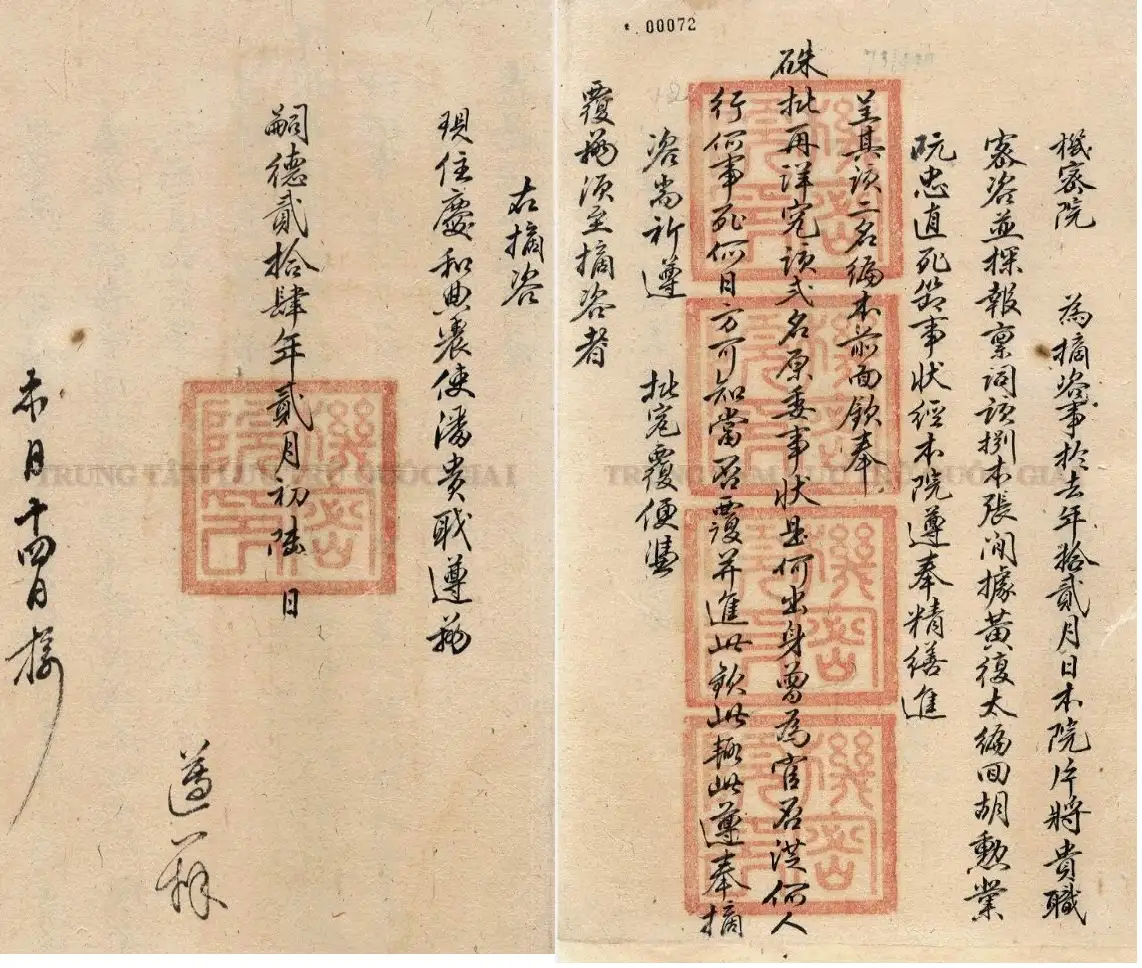 00072
機密院 為摘咨事於去年拾貳月日本院片將貴職
密咨並探報稟詞該捌本張間據黃復太編回胡勳業
阮忠直死節事狀經本院遵奉精繕進
呈其該二名編本前面欽奉
硃批再詳究該弍名原委事狀是何出身曾為官否洪何人
行何事死何日方可知當否覆并進此欽此輒此遵奉摘
咨尚祈遵 批究覆便憑
覆務須至摘咨者
右摘咨
現住慶和典農使潘貴職遵務
嗣德貳拾肆年貳月初陸日
機密院印
本月十四日接
TRUNG TÂM LƯU TRỮ QUỐC GIA I
TRUNG TÂM LƯU TRỮ QUỐC GIA I